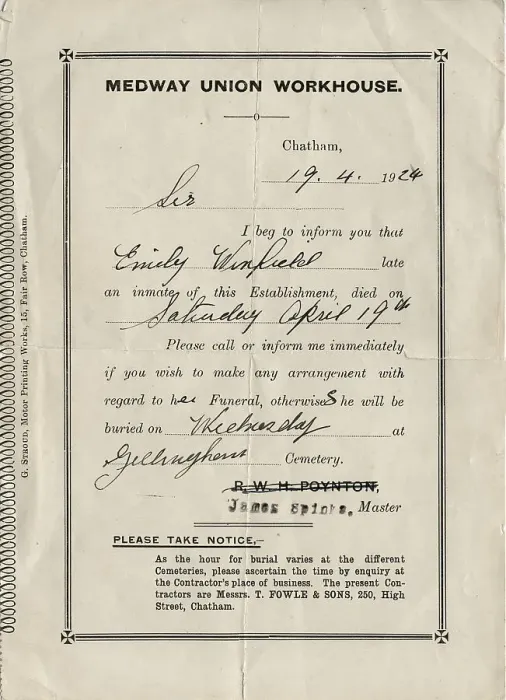 MEDWAY UNION WORKHOUSE.
Chatham,
19. 4. 1924
Sir
I beg to inform you that
Emily Winfield late
an inmate of this Establishment, died on
Saturday April 19th
Please call or inform me immediately
if you wish to make any arrangement with
regard to her Funeral, otherwise She will be
buried on Wednesday at
Gillingham Cemetery.
R. W. H. POYNTON,
James Spinks, Master
PLEASE TAKE NOTICE,—
As the hour for burial varies at the different
Cemeteries, please ascertain the time by enquiry at
the Contractor's place of business. The present Con-
tractors are Messrs. T. FOWLE & SONS, 250, High
Street, Chatham.
G. STROUD, Motor Printing Works, 15, Fair Row, Chatham.